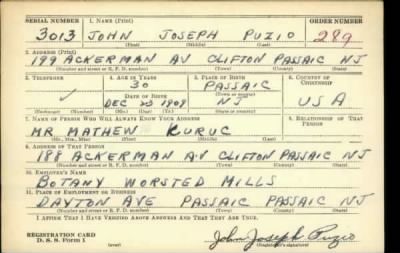 SERIAL NUMBER 1. NAME (Print) ORDER NUMBER
3013 JOHN JOSEPH PUZIO 289
(First) (Middle) (Last)
2. ADDRESS (Print)
199 ACKERMAN AV CLIFTON PASSAIC NJ
(Number and street or R. F. D. number) (Town) (County) (State)
3. TELEPHONE 4. AGE IN YEARS 5. PLACE OF BIRTH 6. COUNTRY OF CITIZENSHIP
30 PASSAIC
DATE OF BIRTH
DEC 1909 NJ USA
(Mo.) (Day) (Yr.)
7. NAME OF PERSON WHO WILL ALWAYS KNOW YOUR ADDRESS 8. RELATIONSHIP OF THAT PERSON
MR. MATHEW KURUC
(Mr., Mrs., Miss) (First) (Middle) (Last)
9. ADDRESS OF THAT PERSON
188 ACKERMAN AV CLIFTON PASSAIC NJ
(Number and street or R. F. D. number) (Town) (County) (State)
10. EMPLOYER'S NAME
BOTANY WORSTED MILLS
11. PLACE OF EMPLOYMENT OR BUSINESS
DAYTON AVE PASSAIC PASSAIC NJ
(Number and street or R. F. D. number) (Town) (County) (State)
I AFFIRM THAT I HAVE VERIFIED ABOVE ANSWERS AND THAT THEY ARE TRUE.
REGISTRATION CARD
D. S. S. Form 1 (over) John Joseph Puzio
(Registrant's signature)